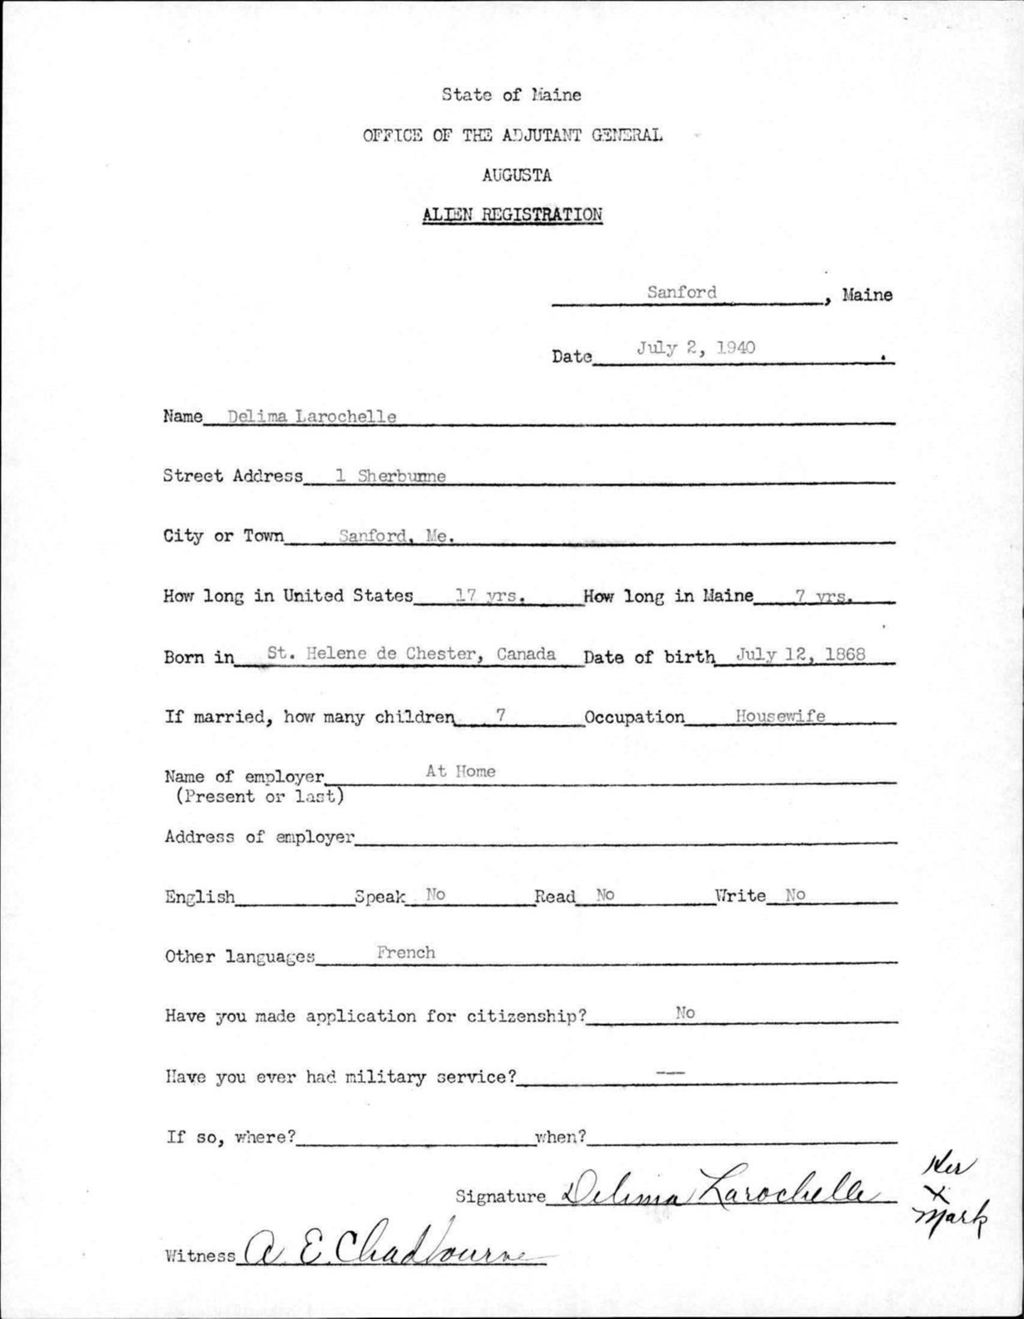 State of Maine
OFFICE OF THE ADJUTANT GENERAL
AUGUSTA
ALIEN REGISTRATION
Sanford, Maine
Date July 2, 1940.
Name Delima Larochelle
Street Address 1 Sherburne
City or Town Sanford, Me.
How long in United States 17 yrs. How long in Maine 7 yrs.
Born in St. Helene de Chester, Canada Date of birth July 12, 1868
If married, how many children 7 Occupation Housewife
Name of employer At Home
(Present or last)
Address of employer
English Speak No Read No Write No
Other languages French
Have you made application for citizenship? No
Have you ever had military service? --
If so, where? when?
Signature Delima Larochelle
Her
X
Mark
Witness A. E. Chadbourne